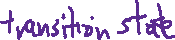 transition state